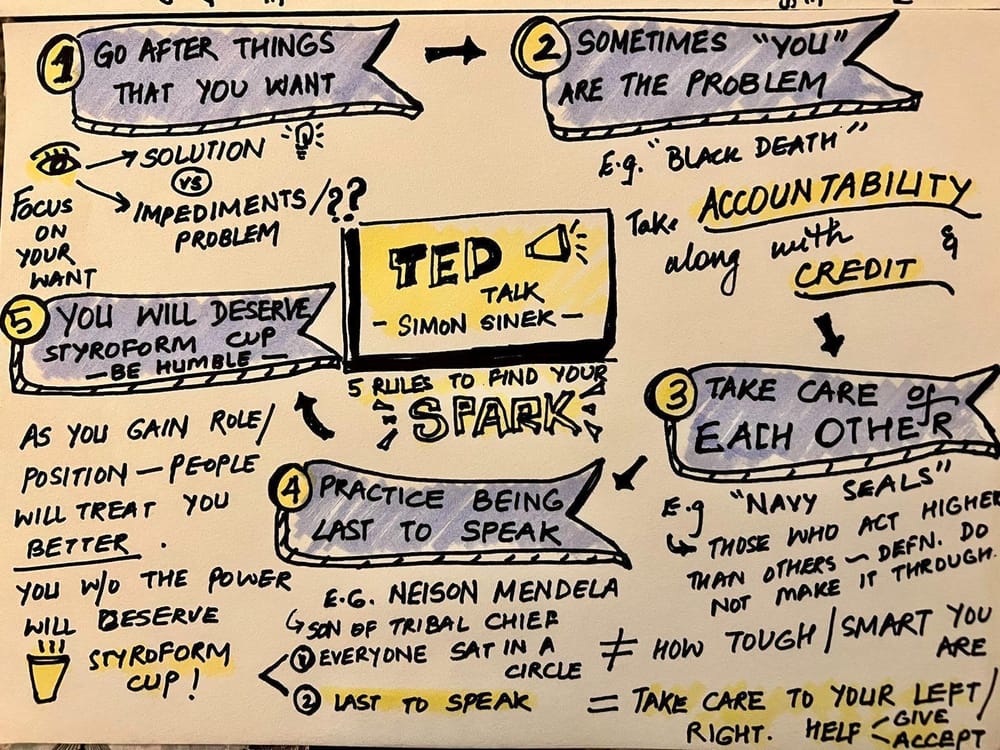 1 GO AFTER THINGS
THAT YOU WANT
SOLUTION
VS
IMPEDIMENTS/??
PROBLEM
FOCUS
ON
YOUR
WANT
2 SOMETIMES "YOU"
ARE THE PROBLEM
E.g. "BLACK DEATH"
Take ACCOUNTABILITY
along with &
CREDIT
TED
TALK
- SIMON SINEK -
5 RULES TO FIND YOUR
SPARK
3 TAKE CARE OF
EACH OTHER
E.g "NAVY SEALS"
THOSE WHO ACT HIGHER
THAN OTHERS - DEFN. DO
NOT MAKE IT THROUGH.
≠ HOW TOUGH/SMART YOU
ARE
= TAKE CARE TO YOUR LEFT/
RIGHT. HELP < GIVE
ACCEPT
4 PRACTICE BEING
LAST TO SPEAK
E.G. NEISON MENDELA
SON OF TRIBAL CHIEF
1 EVERYONE SAT IN A
CIRCLE
2 LAST TO SPEAK
5 YOU WILL DESERVE
STYROFORM CUP
- BE HUMBLE -
AS YOU GAIN ROLE/
POSITION - PEOPLE
WILL TREAT YOU
BETTER.
YOU W/O THE POWER
WILL DESERVE
STYROFORM
CUP!